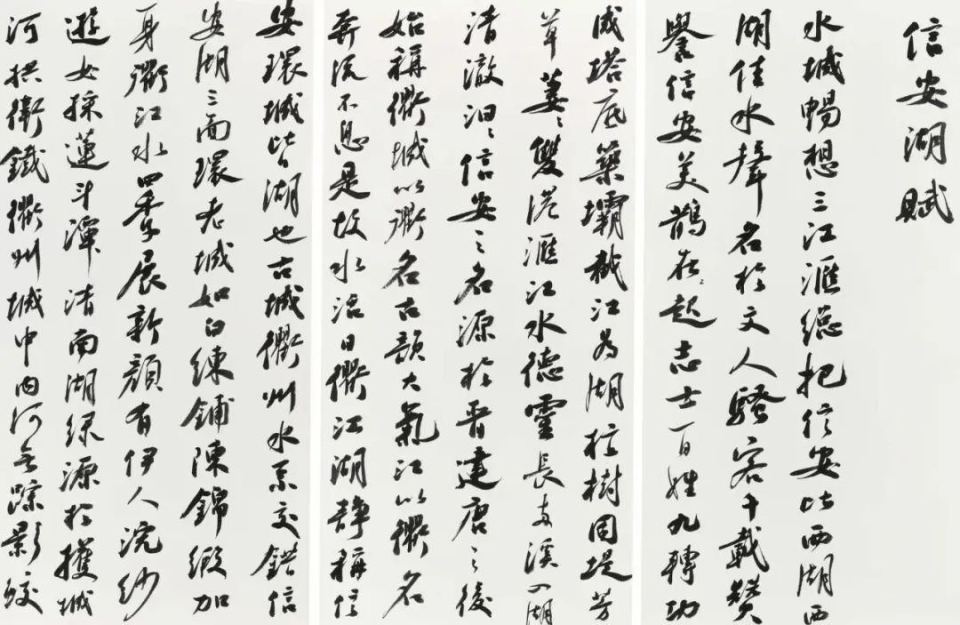 信安湖賦
水城暢想三江滙總把信安比西湖西
湖佳水聲名於文人騷客千載贊
譽信安美鵲起志士百姓九轉功
成塔底築壩截江為湖植樹固堤芳
草萋〻雙港滙江水德靈長支溪入湖
清澈汩〻信安之名源於晉建唐之後
始稱衢城以衢名古韻大氣江以衢名
奔流不息是故水活曰衢江湖靜稱信
安環城皆湖也古城衢州水系交錯信
安湖三面環老城如白練鋪陳錦緞加
身衢江水四季展新顏有伊人浣紗
遊女採蓮斗潭清南湖綠源於獲城
河拱衛鐵衢州城中內河無踪影蛟